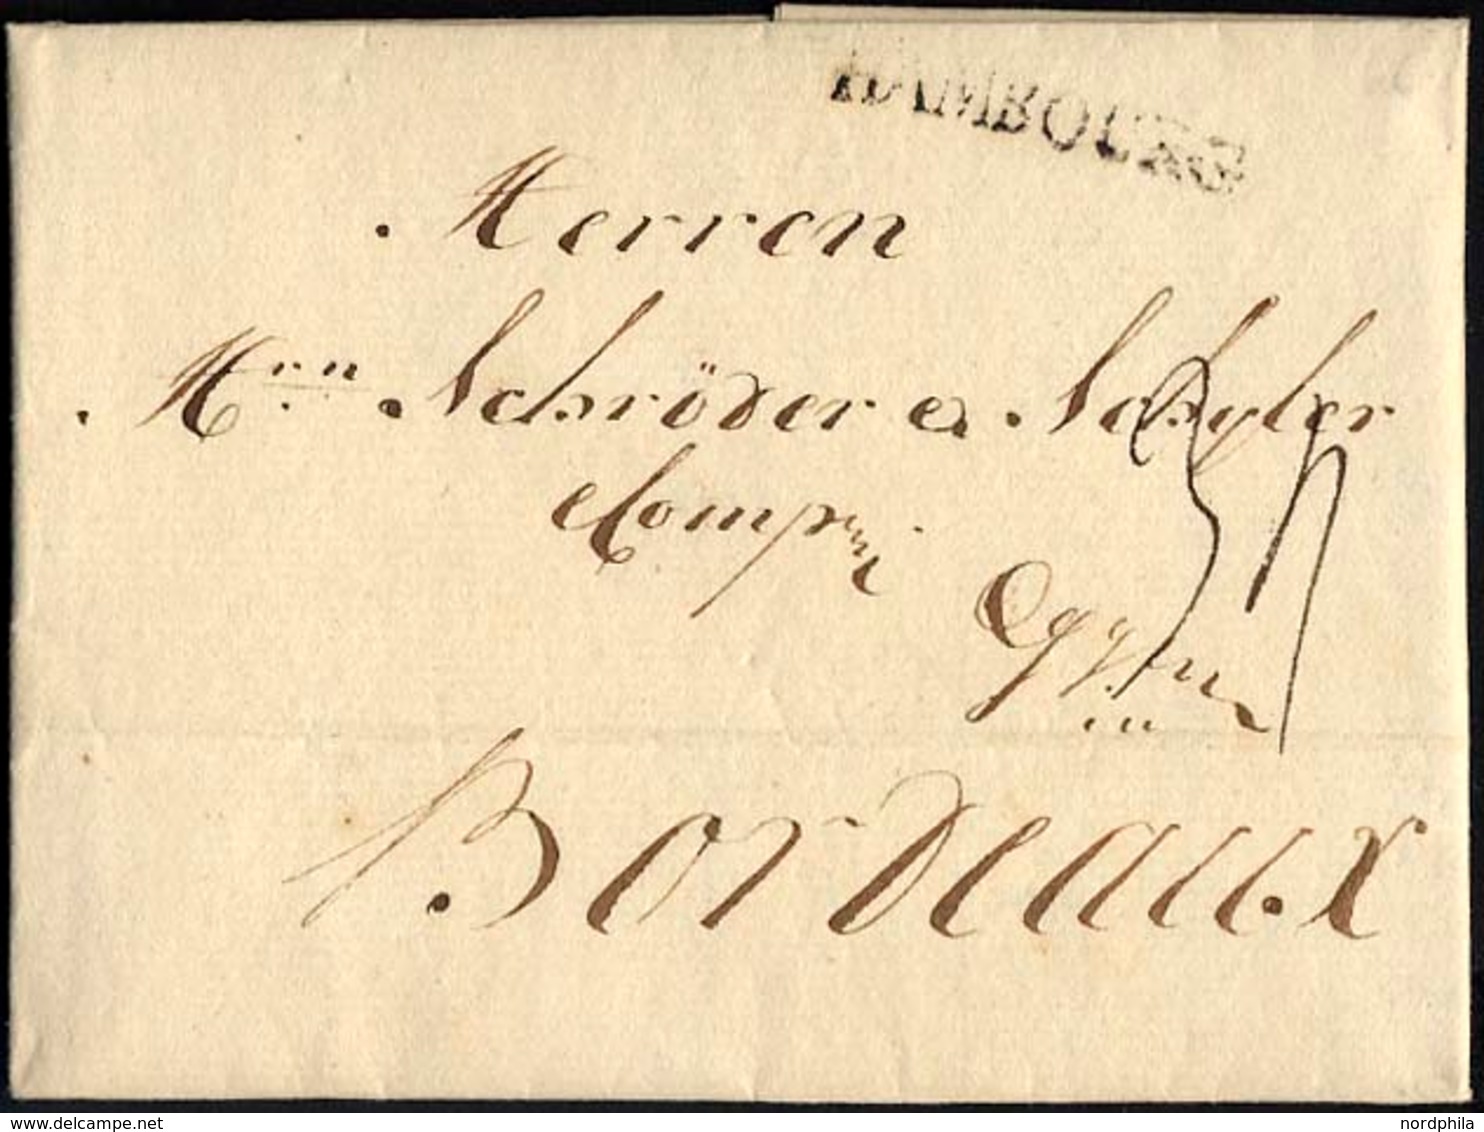 HAMBOURG
Herren
Hrn Schröder & Schyler
Comp
Bordeaux
www.delcampe.net
nordphila